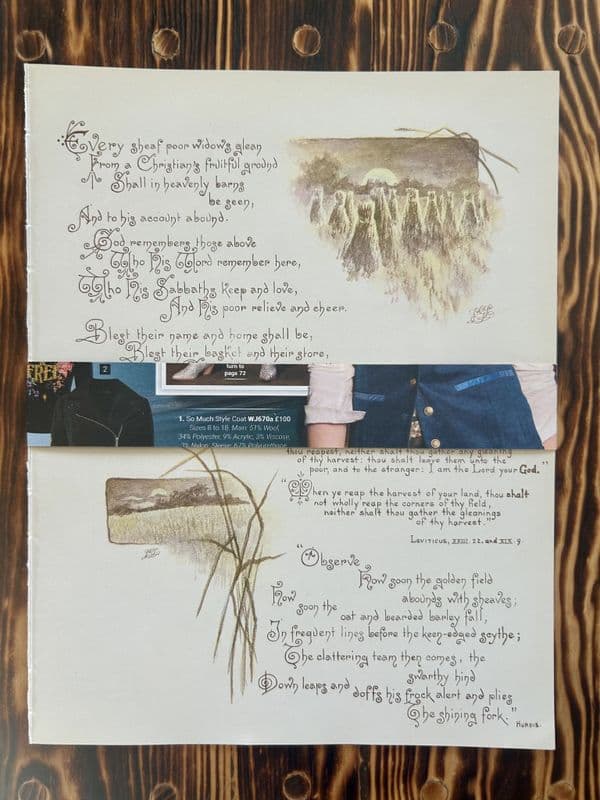 Every sheaf poor widows glean
From a Christian's fruitful ground
Shall in heavenly barns
be seen,
And to his account abound.
God remembers those above
Who His Word remember here,
Who His Sabbaths keep and love,
And His poor relieve and cheer.
Blest their name and home shall be,
Blest their basket and their store,
2
turn to
page 72
1. So Much Style Coat WJ670a £100
Sizes 8 to 18. Main: 51% Wool,
34% Polyester, 9% Acrylic, 3% Viscose,
3% Nylon. Sleeve: 67% Polyurethane
thou reapest, neither shalt thou gather any gleaning
of thy harvest: thou shalt leave them unto the
poor, and to the stranger: I am the Lord your God."
"When ye reap the harvest of your land, thou shalt
not wholly reap the corners of thy field,
neither shalt thou gather the gleanings
of thy harvest."
Leviticus, XXIII. 22, and XIX. 9.
"Observe
How soon the golden field
abounds with sheaves;
How
soon the
oat and bearded barley fall,
In frequent lines before the keen-edged scythe;
The clattering team then comes, the
swarthy hind
Down leaps and doffs his frock alert and plies
The shining fork."
Hurdis.